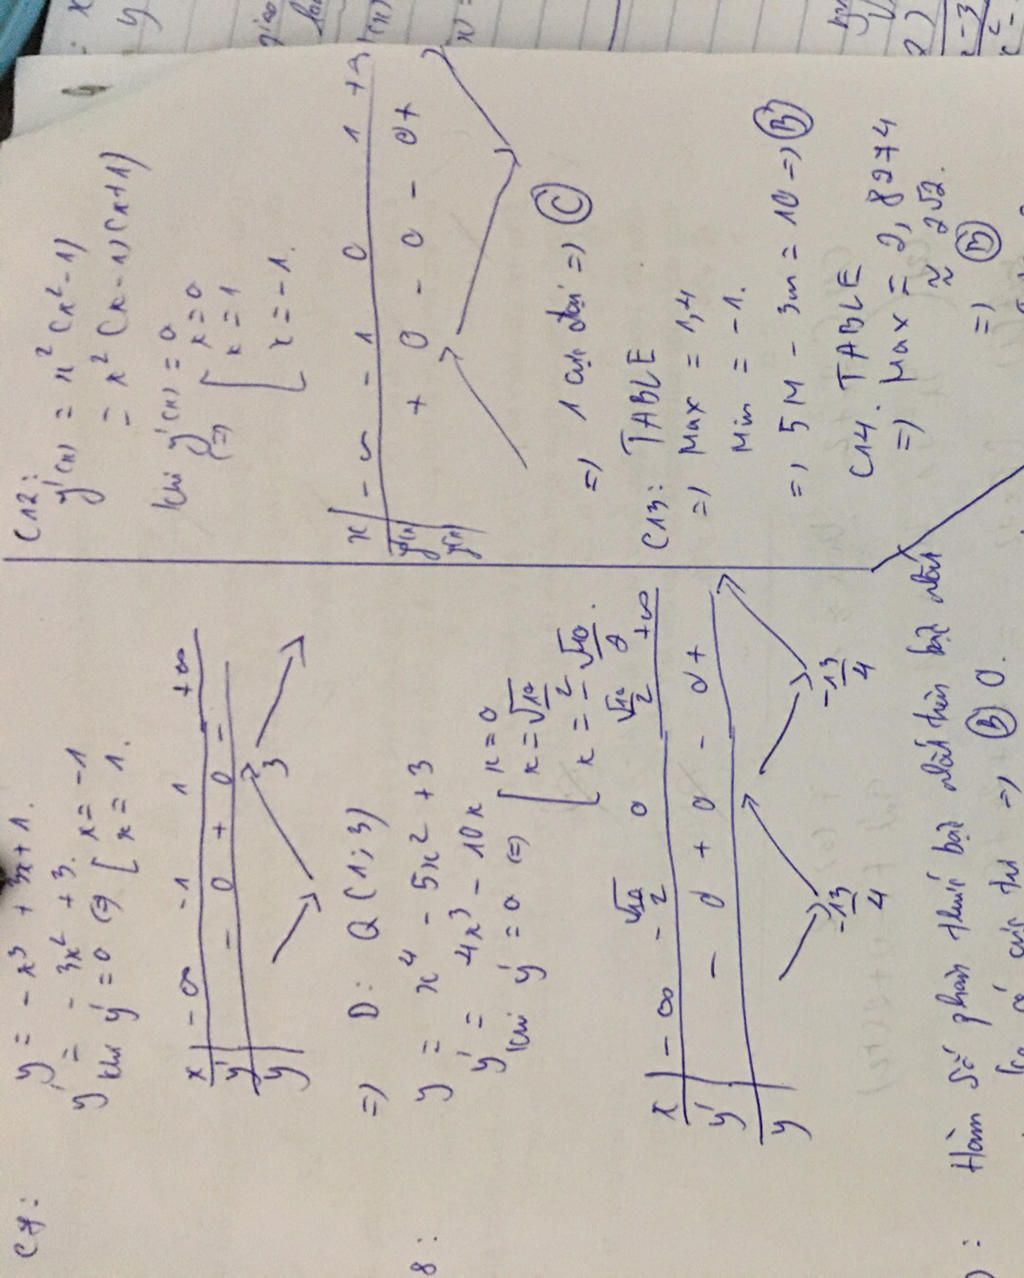 C7: y = - x³ + 3x + 1.
y' = - 3x² + 3.
khi y' = 0 (=) [ x = -1
x = 1.
x - ∞ -1 1 +∞
y' - 0 + 0 -
y 3
=) D: Q (1; 3)
8: y = x⁴ - 5x² + 3
y' = 4x³ - 10x
khi y' = 0 (=) [ x = 0
x = √10/2
x = - √10/2.
x - ∞ - √10/2 0 √10/2 +∞
y' - 0 + 0 - 0 +
y -13/4 -13/4
): Hàm số phân thức bậc nhất trên bậc nhất
có cực trị =) (B) 0.
C12:
y'(x) = x² (x² - 1)
= x² (x - 1) (x + 1)
khi y'(x) = 0
(=) [ x = 0
x = 1
x = -1.
x - ∞ - 1 0 1 +∞
y'(x) + 0 - 0 - 0 +
y(x)
=) 1 cực đại =) (C)
C13: TABLE
=) Max = 1,4
Min = -1.
=) 5M - 3m = 10 =) (B)
C14. TABLE
=) Max = 2,8274
≈ 2√2.
=) (B)